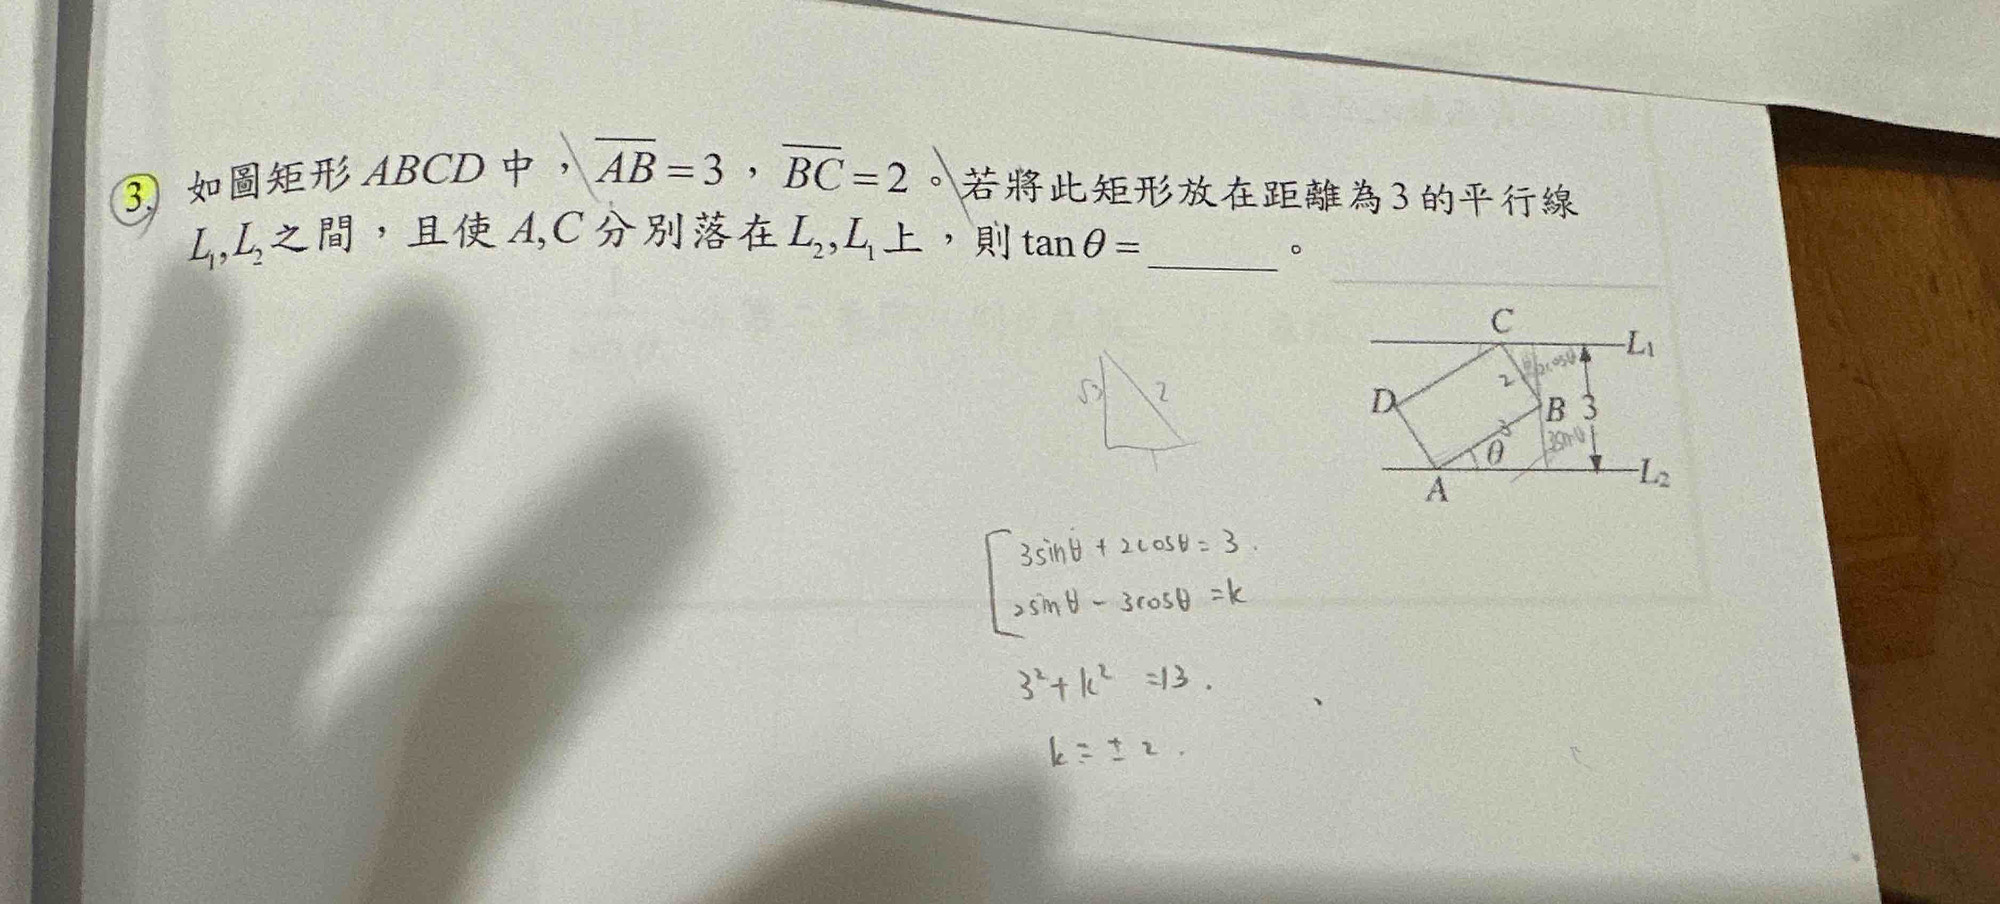 3. 如圖矩形 ABCD 中，AB = 3，BC = 2。若將此矩形放在距離為 3 的平行線
L₁, L₂ 之間，且使 A, C 分別落在 L₂, L₁ 上，則 tan θ = ______。
C
L₁
2 θ 2cosθ
D
B 3
√3 2
3 3sinθ
θ
1
L₂
A
3sinθ + 2cosθ = 3.
2sinθ - 3cosθ = k
3² + k² = 13.
k = ± 2.